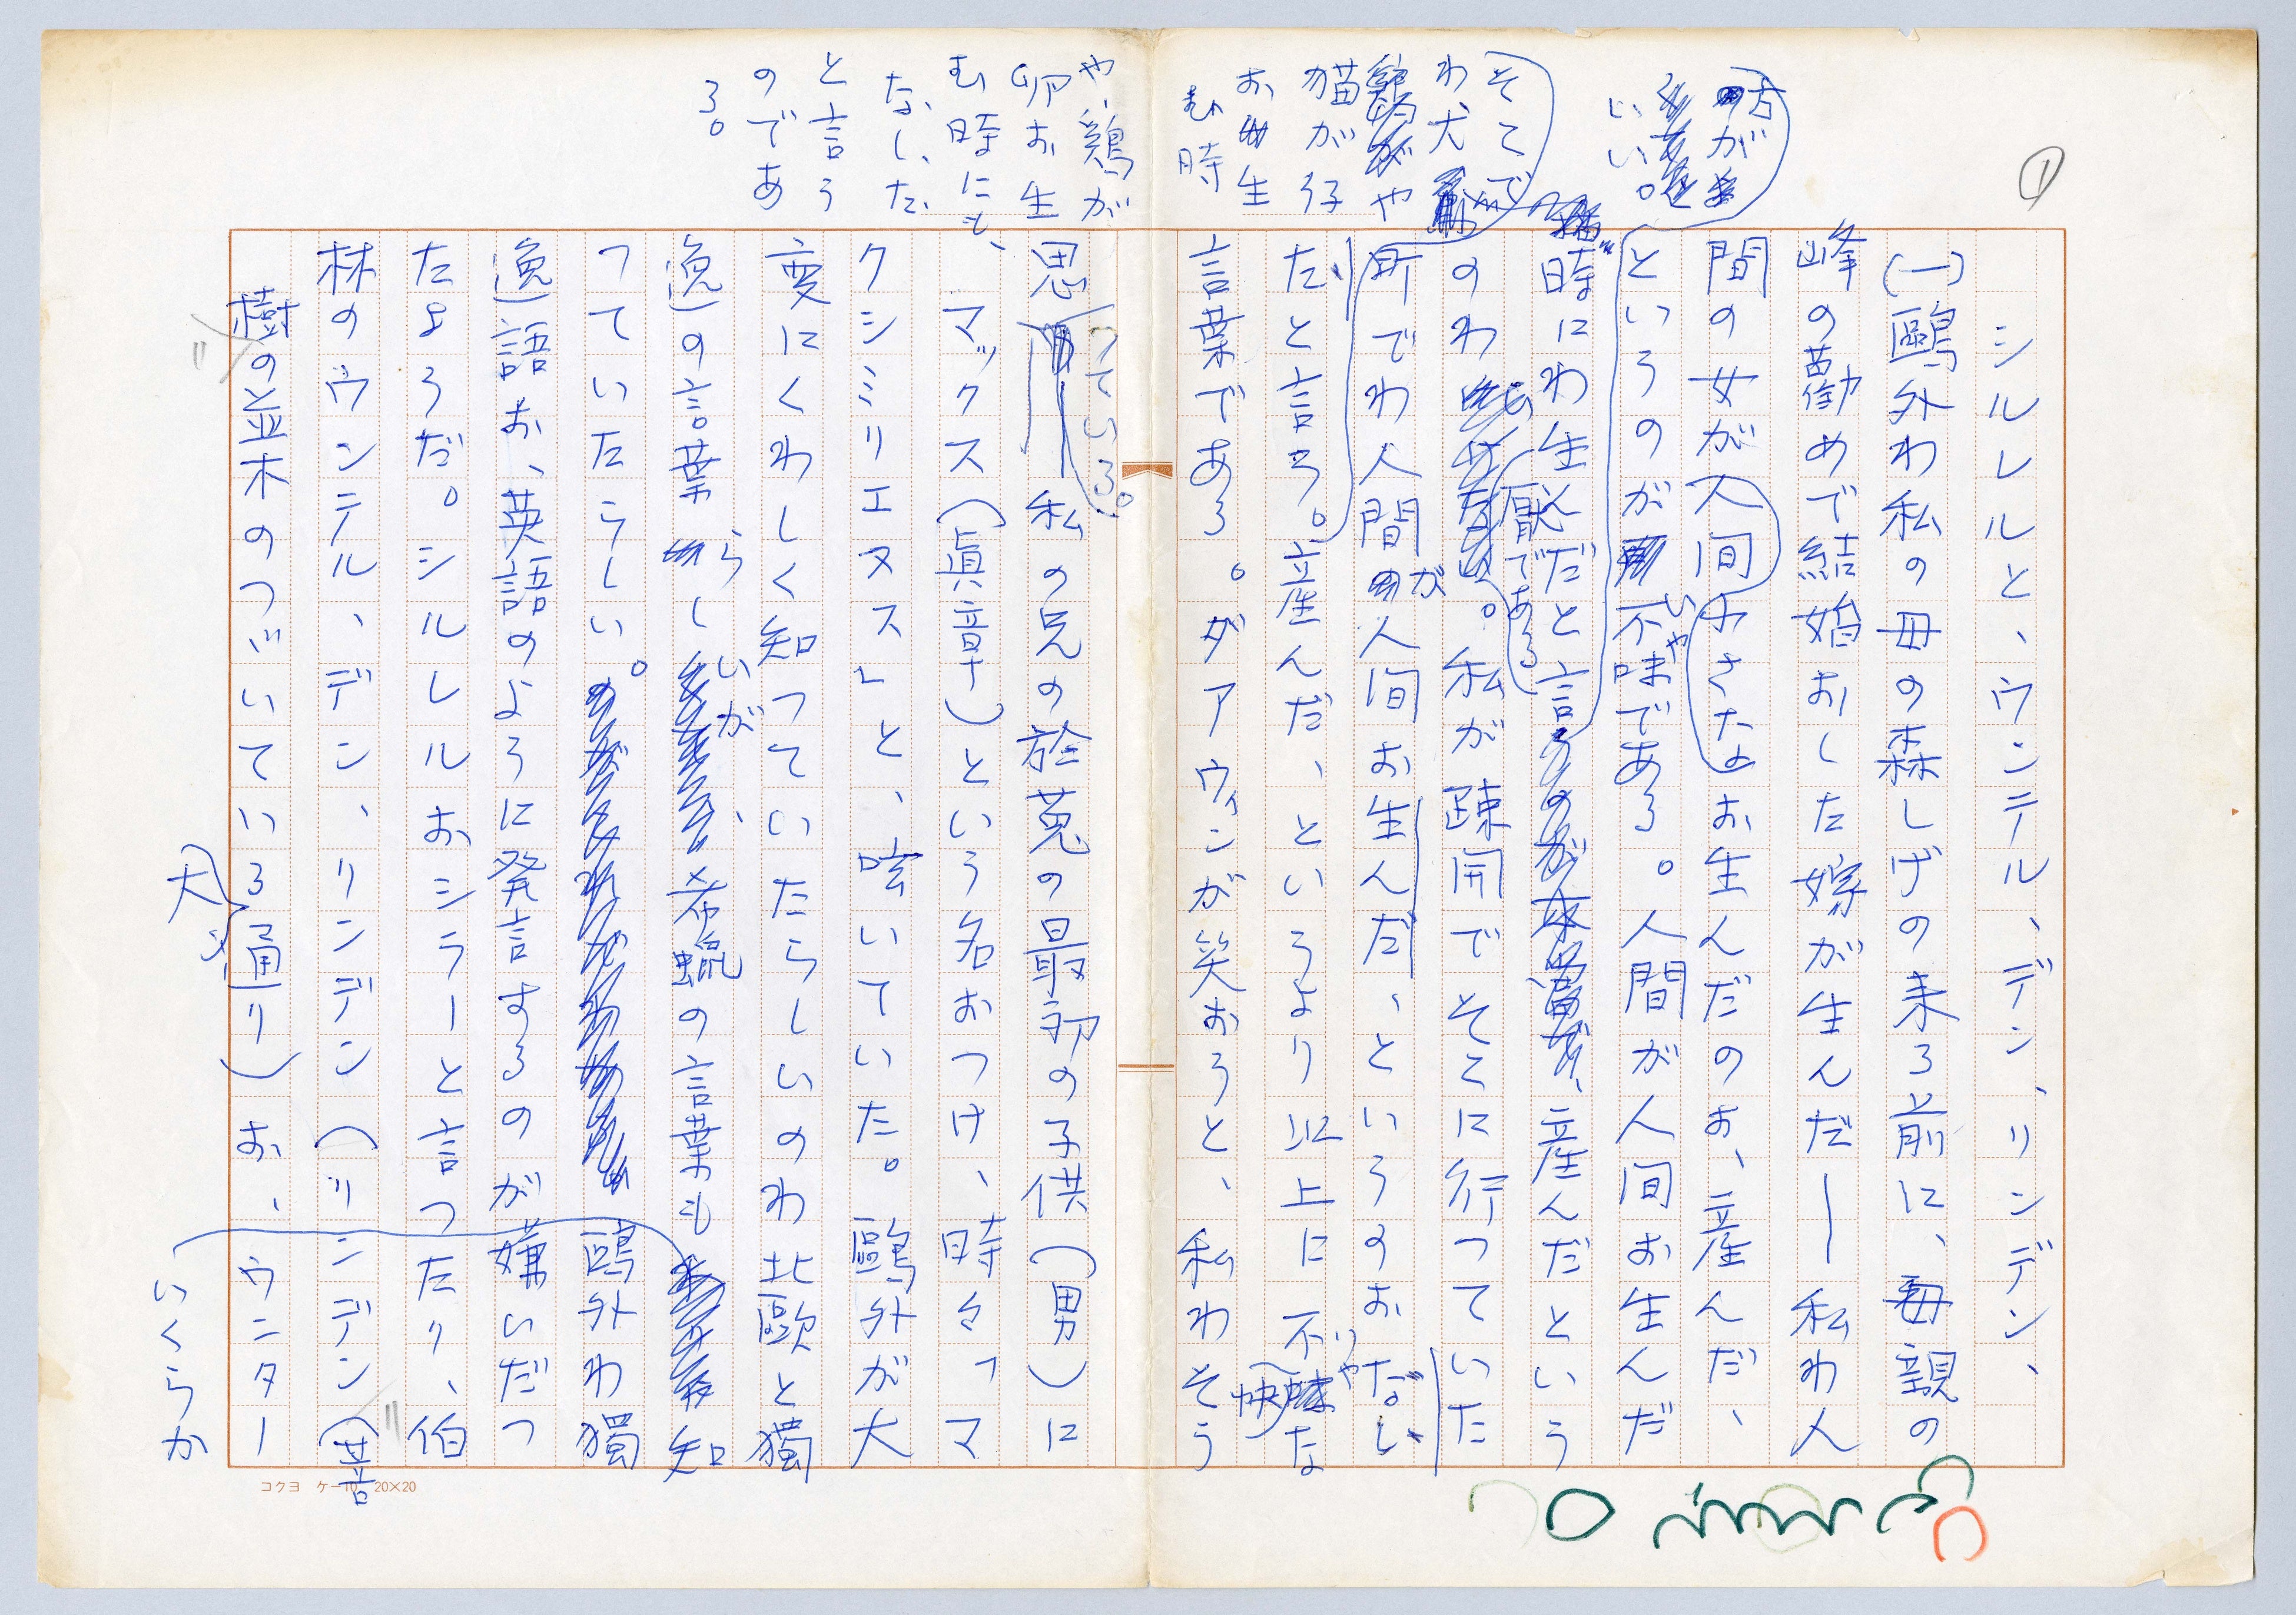 ①
シルレルと、ウンテル、デン、リンデン、
(一)鷗外わ私の母の森しげの来る前に、母親の
峰の勸めで結婚おした嫁が生んだ──私わ人
間の女が人間やさなお生んだのお、産んだ、
方がいい。
というのが不味である。人間が人間お生んだ
いや
時にわ生んだと言
産んだという
のわ厭である。私が疎開でそこに行つていた
そこでわ犬や
猫が仔
お生
む時
や、鶏が
卵お生
む時にも、
なした
と言う
のであ
る。
町でわ人間が人間お生んだ、というのおなし
た、と言う。産んだ、というより以上に不快な
いや
言葉である。ダアウィンが笑おうと、私わそう
思つている。
私の兄の於菟の最初の子供(男)に
マックス(眞章)という名おつけ、時々「マ
クシミリエヌス」と、呟いていた。鷗外が大
変にくわしく知つていたらしいのわ北歐と獨
逸の言葉らしいが、希蠟の言葉も知
いくらか
つていたらしい。鷗外わ獨
逸語お、英語のように発言するのが嫌いだつ
たようだ。シルレルおシラーと言つたり、伯
林のウンテル、デン、リンデン(リンデン(菩
樹の並木のつゞいている大通り)お、ウンター
コクヨ ケー10 20×20